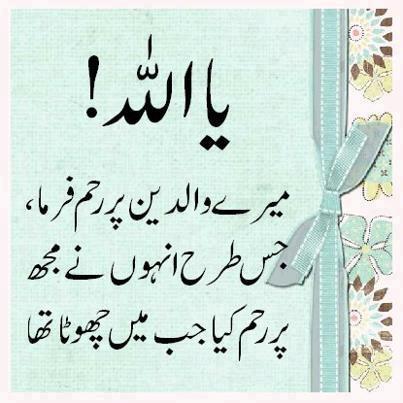 یا اللہ!
میرے والدین پر رحم فرما،
جس طرح انہوں نے مجھ
پر رحم کیا جب میں چھوٹا تھا